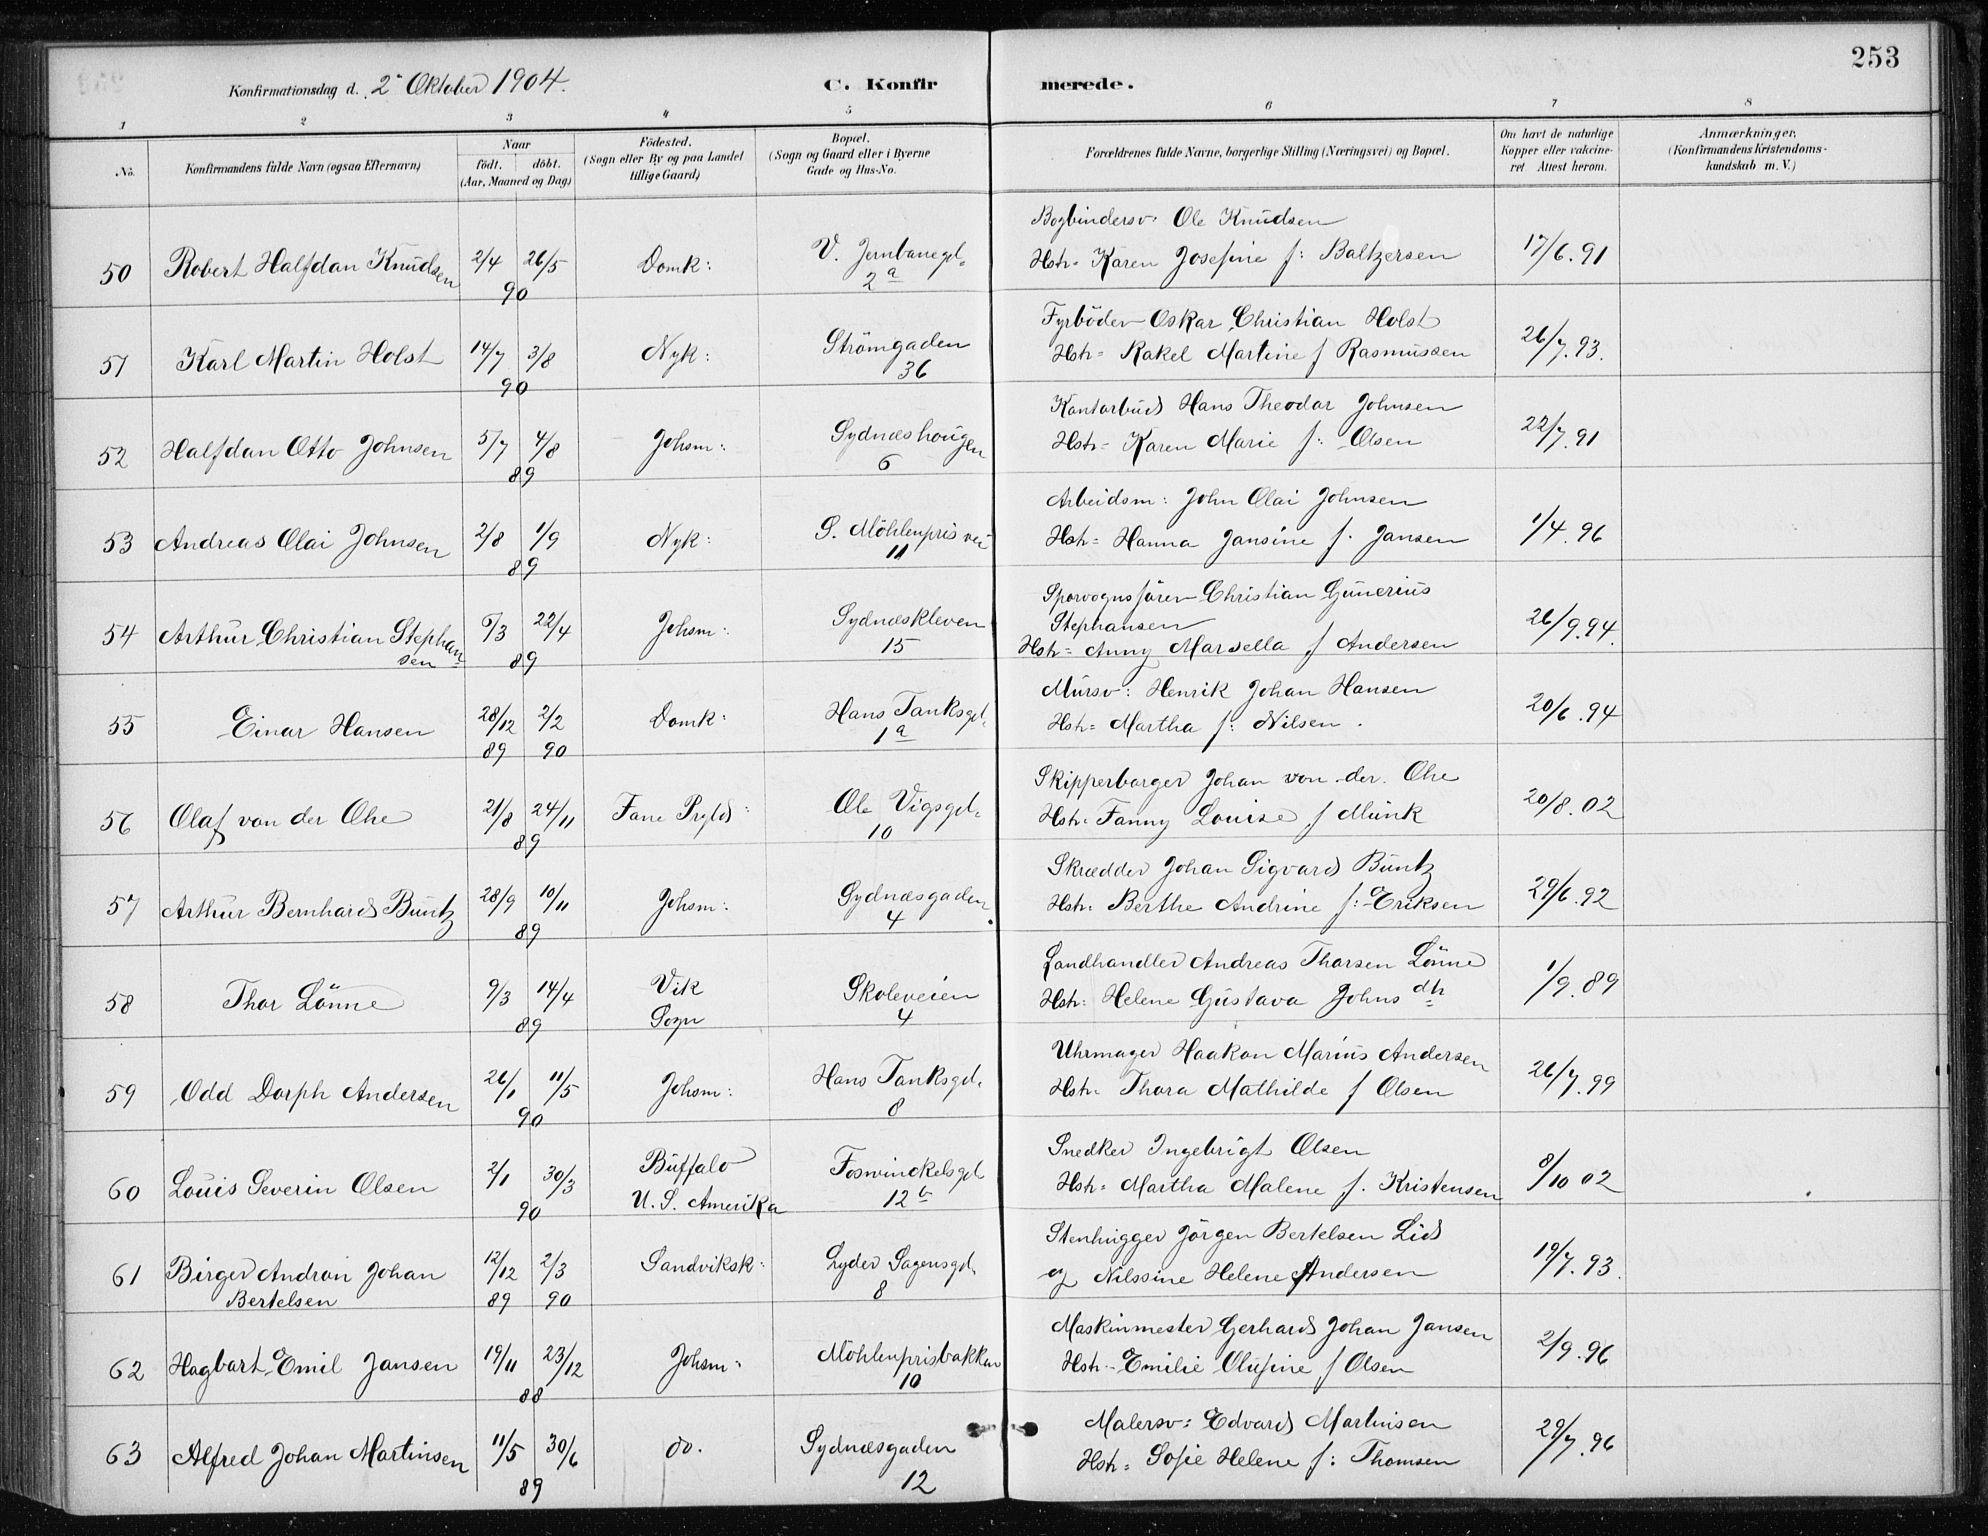 253
Konfirmationsdag d. 2 Oktober 1904.
C. Konfirmerede.
1 2 3 4 5 6 7 8
No.
Konfirmandens fulde Navn (ogsaa Efternavn)
Naar
födt. döbt.
(Aar, Maaned og Dag)
Födested.
(Sogn eller By og paa Landet
tillige Gaard)
Bopæl.
(Sogn og Gaard eller i Byerne
Gade og Hus-No.
Forældrenes fulde Navne, borgerlige Stilling (Næringsvei) og Bopæl.
Om havt de naturlige
Kopper eller vakcine-
ret Attest herom.
Anmærkninger,
(Konfirmandens Kristendoms-
kundskab m. V.)
Bogbindersv. Ole Knudsen
50 Robert Halfdan Knudsen 2/4 26/5 Domk: V. Jernbanegd. Hstr. Karen Josefine f: Baltzersen 17/6.91
90 2a
Fyrböder Oskar Christian Holst
51 Karl Martin Holst 14/7 3/8 Nyk: Strömgaden Hstr. Rakel Martine f Rasmussen 26/7.93.
90 36
Kontorbud Hans Theodor Johnsen
52 Halfdan Otto Johnsen 5/7 4/8 Johsm: Sydneshougen Hstr. Karen Marie f: Olsen 22/7.91
89 6
Arbeidsm: John Olai Johnsen
53 Andreas Olai Johnsen 2/8 1/9 Nyk: S. Möhlenpris vei Hstr. Hanna Jansine f. Jansen 1/4.96
89 11
Sporvognsförer Christian Gunerius
54 Arthur Christian Stephan- /3 22/4 Johsm: Sydneskleven Stephansen 26/9.94.
sen 89 15 Hstr. Anny Marsella f Andersen
Mursv: Henrik Johan Hansen
55 Einar Hansen 28/12 2/2 Domk: Hans Tanksgd. Hstr. Martha f: Nilsen. 20/6.94
89 90 1a
Skipperborger Johan von der Ohe
56 Olaf von der Ohe 21/8 24/11 Fane Prgld: Ole Vigsgd. Hstr. Fanny Louise f Munk 20/8.02
89 10
Skrædder Johan Sigvard Buntz
57 Arthur Bernhard Buntz 28/9 10/11 Johsm: Sydnæsgaden Hstr. Berthe Andrine f: Eriksen 29/6.92
89 4
Landhandler Andreas Thorsen Lönne
58 Thor Lönne 9/3 14/4 Vik Skoleveien Hstr. Helene Gustava Johns dtr 1/9.89
89 Sogn 4
Uhrmager Haakon Marius Andersen
59 Odd Dorph Andersen 26/1 11/5 Johsm: Hans Tanksgd. Hstr. Thora Mathilde f Olsen 26/7.99
90 8
Snedker Ingebrigt Olsen
60 Louis Severin Olsen 2/1 30/3 Buffalo Fosswinckelsgd Hstr. Martha Malene f. Kristensen 8/10 02
90 U.S. Amerika 12b
Stenhugger Jörgen Bertelsen Lid
61 Birger Andron Johan 12/12 2/3 Sandviksk: Lyder Sagensgd. og Nilssine Helene Andersen 19/7.93.
Bertelsen 89 90 8
Maskinmester Gerhard Johan Jansen
62 Hagbart Emil Jansen 19/11 23/12 Johsm: Möhlenprisbakken Hstr. Emilie Olufine f Olsen 2/9.96
88 10
Malersv: Edvard Martinsen
63 Alfred Johan Martinsen 11/5 30/6 do. Sydnæsgaden Hstr. Sofie Helene f: Thomsen 29/7.96
89 12